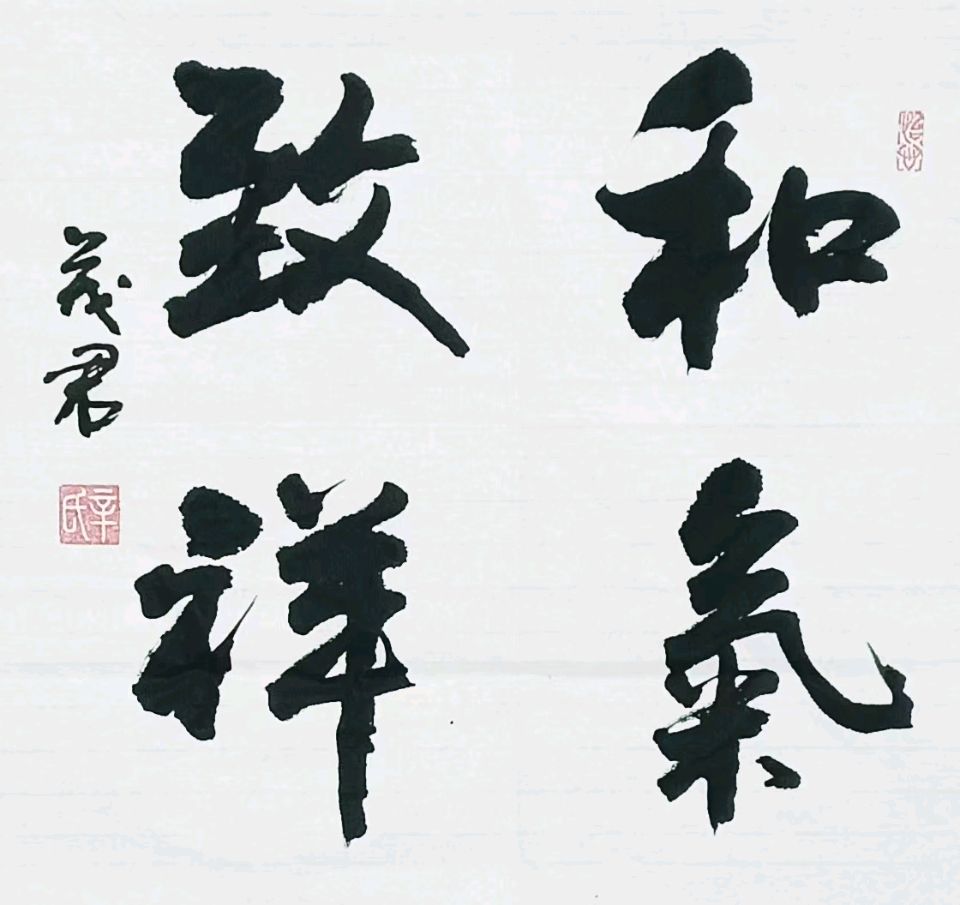 和氣
致祥
茂君
辛氏